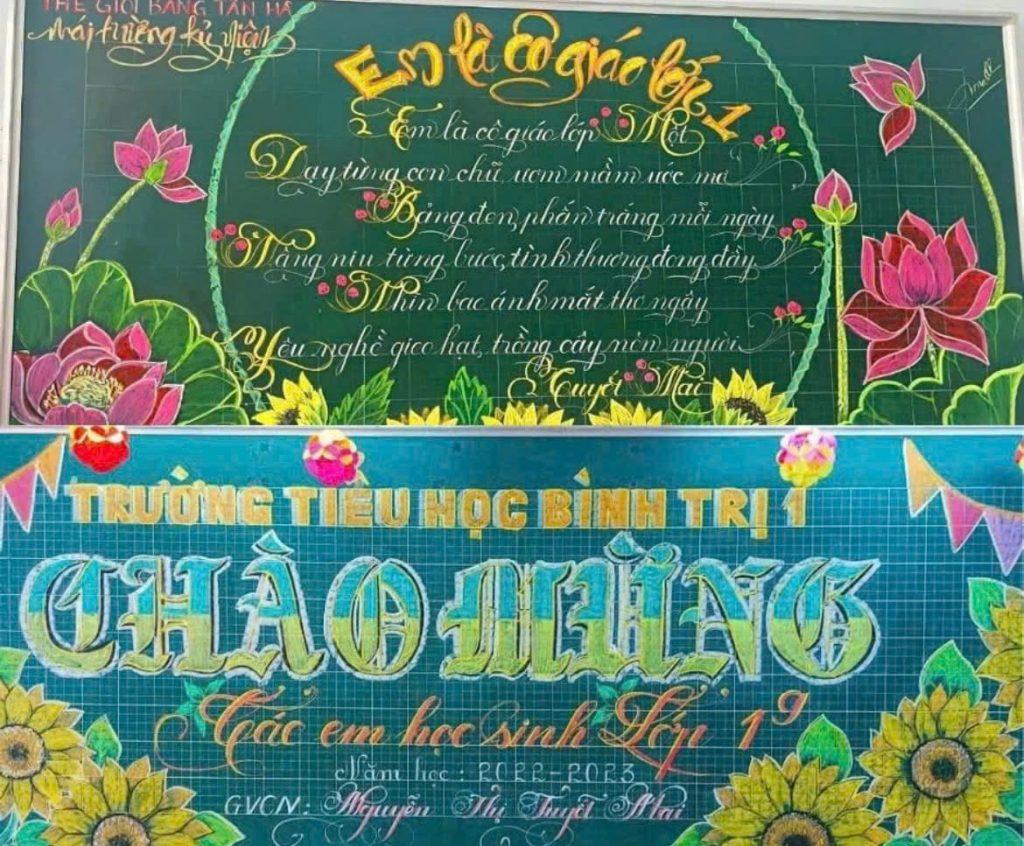 THẾ GIỚI BẢNG TẤN HÀ
Mái trường kỷ niệm
Em là cô giáo lớp 1
Em là cô giáo lớp Một
Dạy từng con chữ, ươm mầm ước mơ
Bảng đen, phấn trắng mỗi ngày
Nặng niu từng bước, tình thương đong đầy
Nhìn bao ánh mắt thơ ngây
Yêu nghề gieo hạt, trồng cây nên người
Tuyết Mai
TRƯỜNG TIỂU HỌC BÌNH TRỊ 1
CHÀO MỪNG
Các em học sinh Lớp 1
Năm học: 2022-2023
GVCN: Nguyễn Thị Tuyết Mai